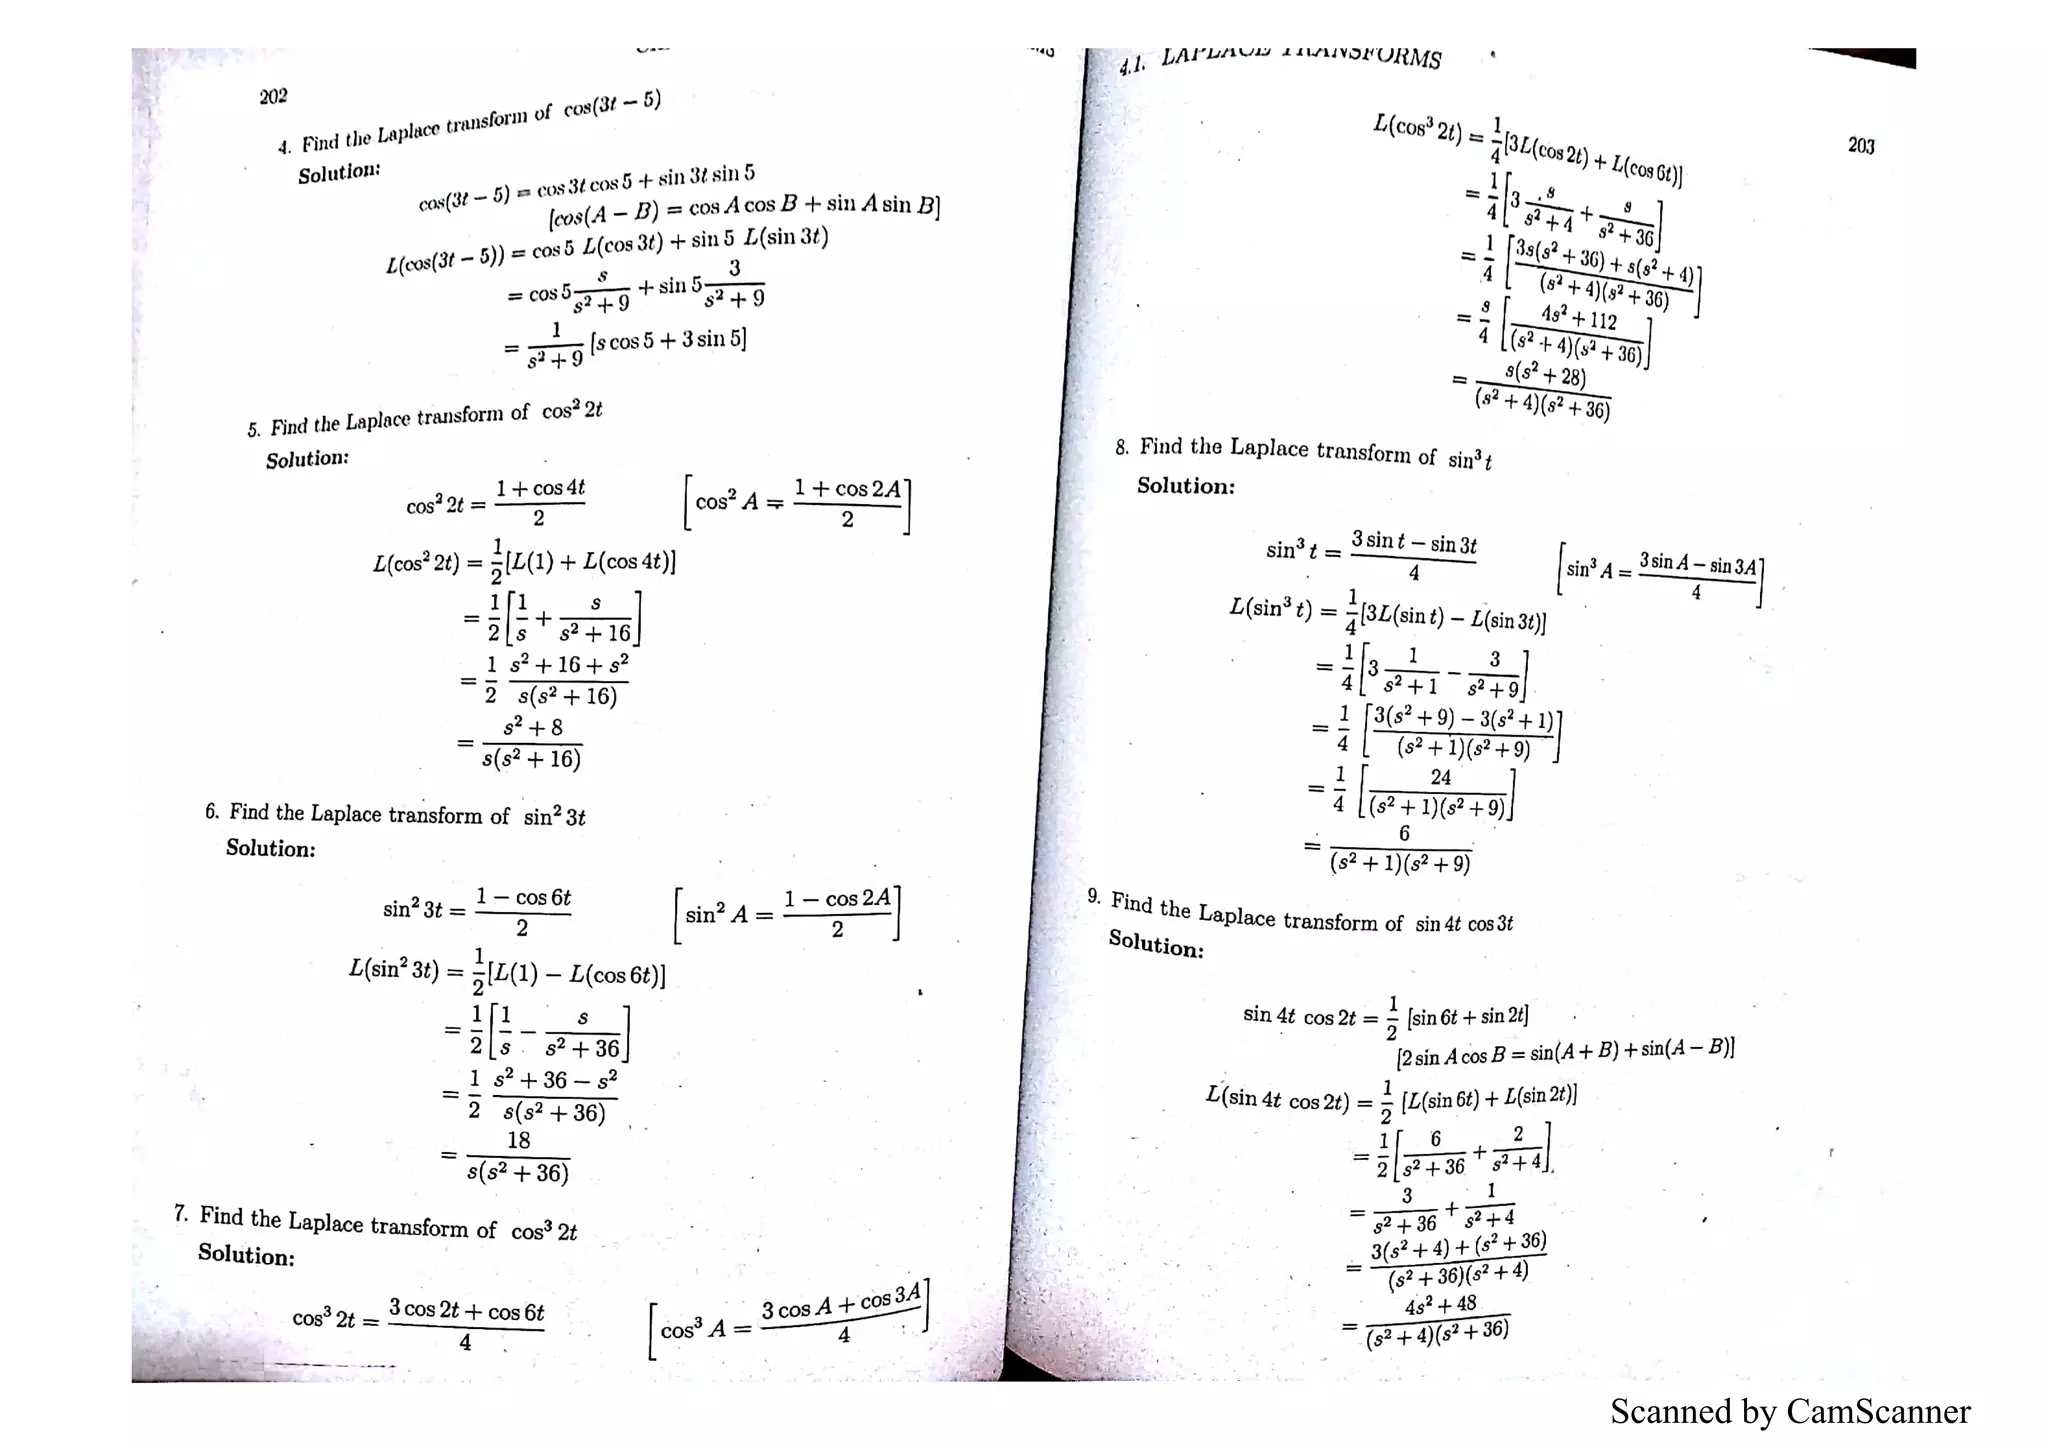 202
4. Find the Laplace transform of cos(3t − 5)
Solution:
cos(3t − 5) = cos 3t cos 5 + sin 3t sin 5
[cos(A − B) = cos A cos B + sin A sin B]
L(cos(3t − 5)) = cos 5 L(cos 3t) + sin 5 L(sin 3t)
= cos 5 s/(s² + 9) + sin 5 3/(s² + 9)
= 1/(s² + 9) [s cos 5 + 3 sin 5]
5. Find the Laplace transform of cos² 2t
Solution:
cos² 2t = (1 + cos 4t)/2 [cos² A = (1 + cos 2A)/2]
L(cos² 2t) = 1/2 [L(1) + L(cos 4t)]
= 1/2 [1/s + s/(s² + 16)]
= 1/2 (s² + 16 + s²)/(s(s² + 16))
= (s² + 8)/(s(s² + 16))
6. Find the Laplace transform of sin² 3t
Solution:
sin² 3t = (1 − cos 6t)/2 [sin² A = (1 − cos 2A)/2]
L(sin² 3t) = 1/2 [L(1) − L(cos 6t)]
= 1/2 [1/s − s/(s² + 36)]
= 1/2 (s² + 36 − s²)/(s(s² + 36))
= 18/(s(s² + 36))
7. Find the Laplace transform of cos³ 2t
Solution:
cos³ 2t = (3 cos 2t + cos 6t)/4 [cos³ A = (3 cos A + cos 3A)/4]
4.1. LAPLACE TRANSFORMS
203
L(cos³ 2t) = 1/4 [3L(cos 2t) + L(cos 6t)]
= 1/4 [3 s/(s² + 4) + s/(s² + 36)]
= 1/4 [(3s(s² + 36) + s(s² + 4))/((s² + 4)(s² + 36))]
= s/4 [(4s² + 112)/((s² + 4)(s² + 36))]
= s(s² + 28)/((s² + 4)(s² + 36))
8. Find the Laplace transform of sin³ t
Solution:
sin³ t = (3 sin t − sin 3t)/4 [sin³ A = (3 sin A − sin 3A)/4]
L(sin³ t) = 1/4 [3L(sin t) − L(sin 3t)]
= 1/4 [3 1/(s² + 1) − 3/(s² + 9)]
= 1/4 [(3(s² + 9) − 3(s² + 1))/((s² + 1)(s² + 9))]
= 1/4 [24/((s² + 1)(s² + 9))]
= 6/((s² + 1)(s² + 9))
9. Find the Laplace transform of sin 4t cos 3t
Solution:
sin 4t cos 2t = 1/2 [sin 6t + sin 2t]
[2 sin A cos B = sin(A + B) + sin(A − B)]
L(sin 4t cos 2t) = 1/2 [L(sin 6t) + L(sin 2t)]
= 1/2 [6/(s² + 36) + 2/(s² + 4)].
= 3/(s² + 36) + 1/(s² + 4)
= (3(s² + 4) + (s² + 36))/((s² + 36)(s² + 4))
= (4s² + 48)/((s² + 4)(s² + 36))
Scanned by CamScanner